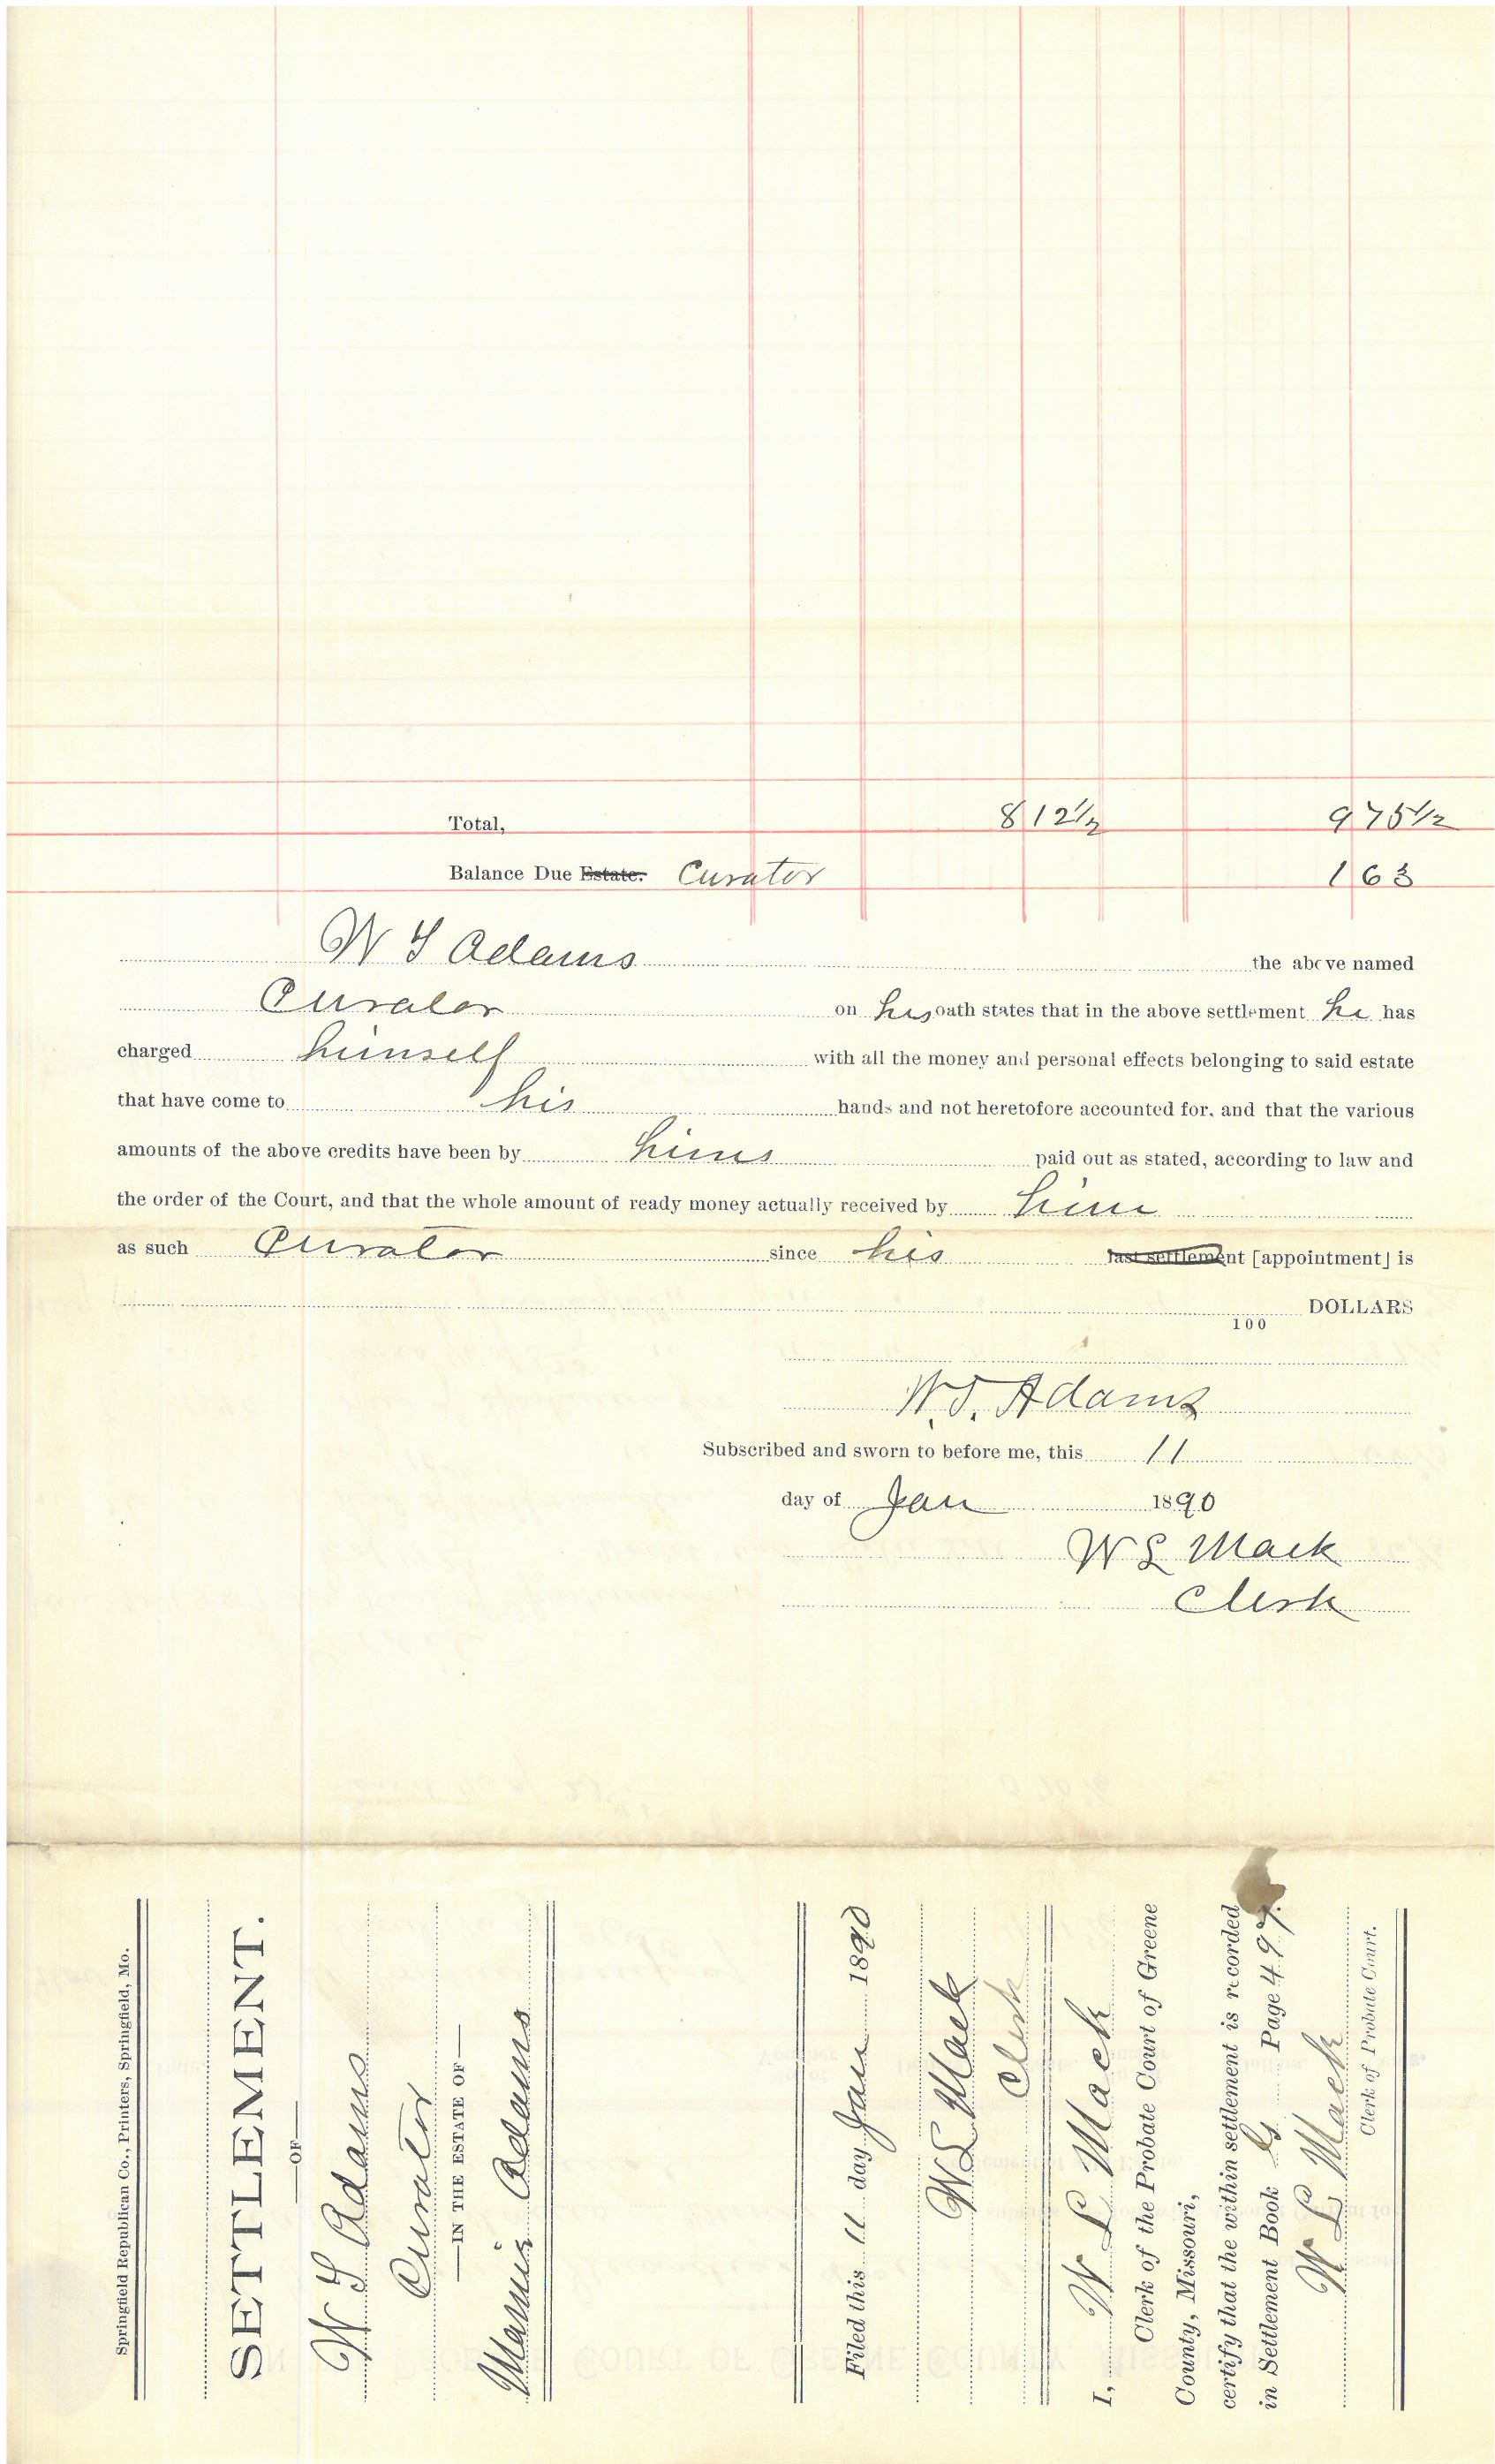 Total, 8 12½ 9 75½
Balance Due Estate. Curator 1 63
W S Adams the above named
Curator on his oath states that in the above settlement he has
charged himself with all the money and personal effects belonging to said estate
that have come to his hands and not heretofore accounted for, and that the various
amounts of the above credits have been by him paid out as stated, according to law and
the order of the Court, and that the whole amount of ready money actually received by him
as such Curator since his last settlement [appointment] is
DOLLARS
100
W. S. Adams
Subscribed and sworn to before me, this 11
day of Jan 1890
W L Mack
Clerk
Springfield Republican Co., Printers, Springfield, Mo.
SETTLEMENT.
—OF—
W S Adams
Curator
—IN THE ESTATE OF—
Mamie Adams
Filed this 11 day Jan 1890
W L Mack
Clerk
I, W L Mack
Clerk of the Probate Court of Greene
County, Missouri,
certify that the within settlement is recorded
in Settlement Book G Page 497.
W L Mack
Clerk of Probate Court.